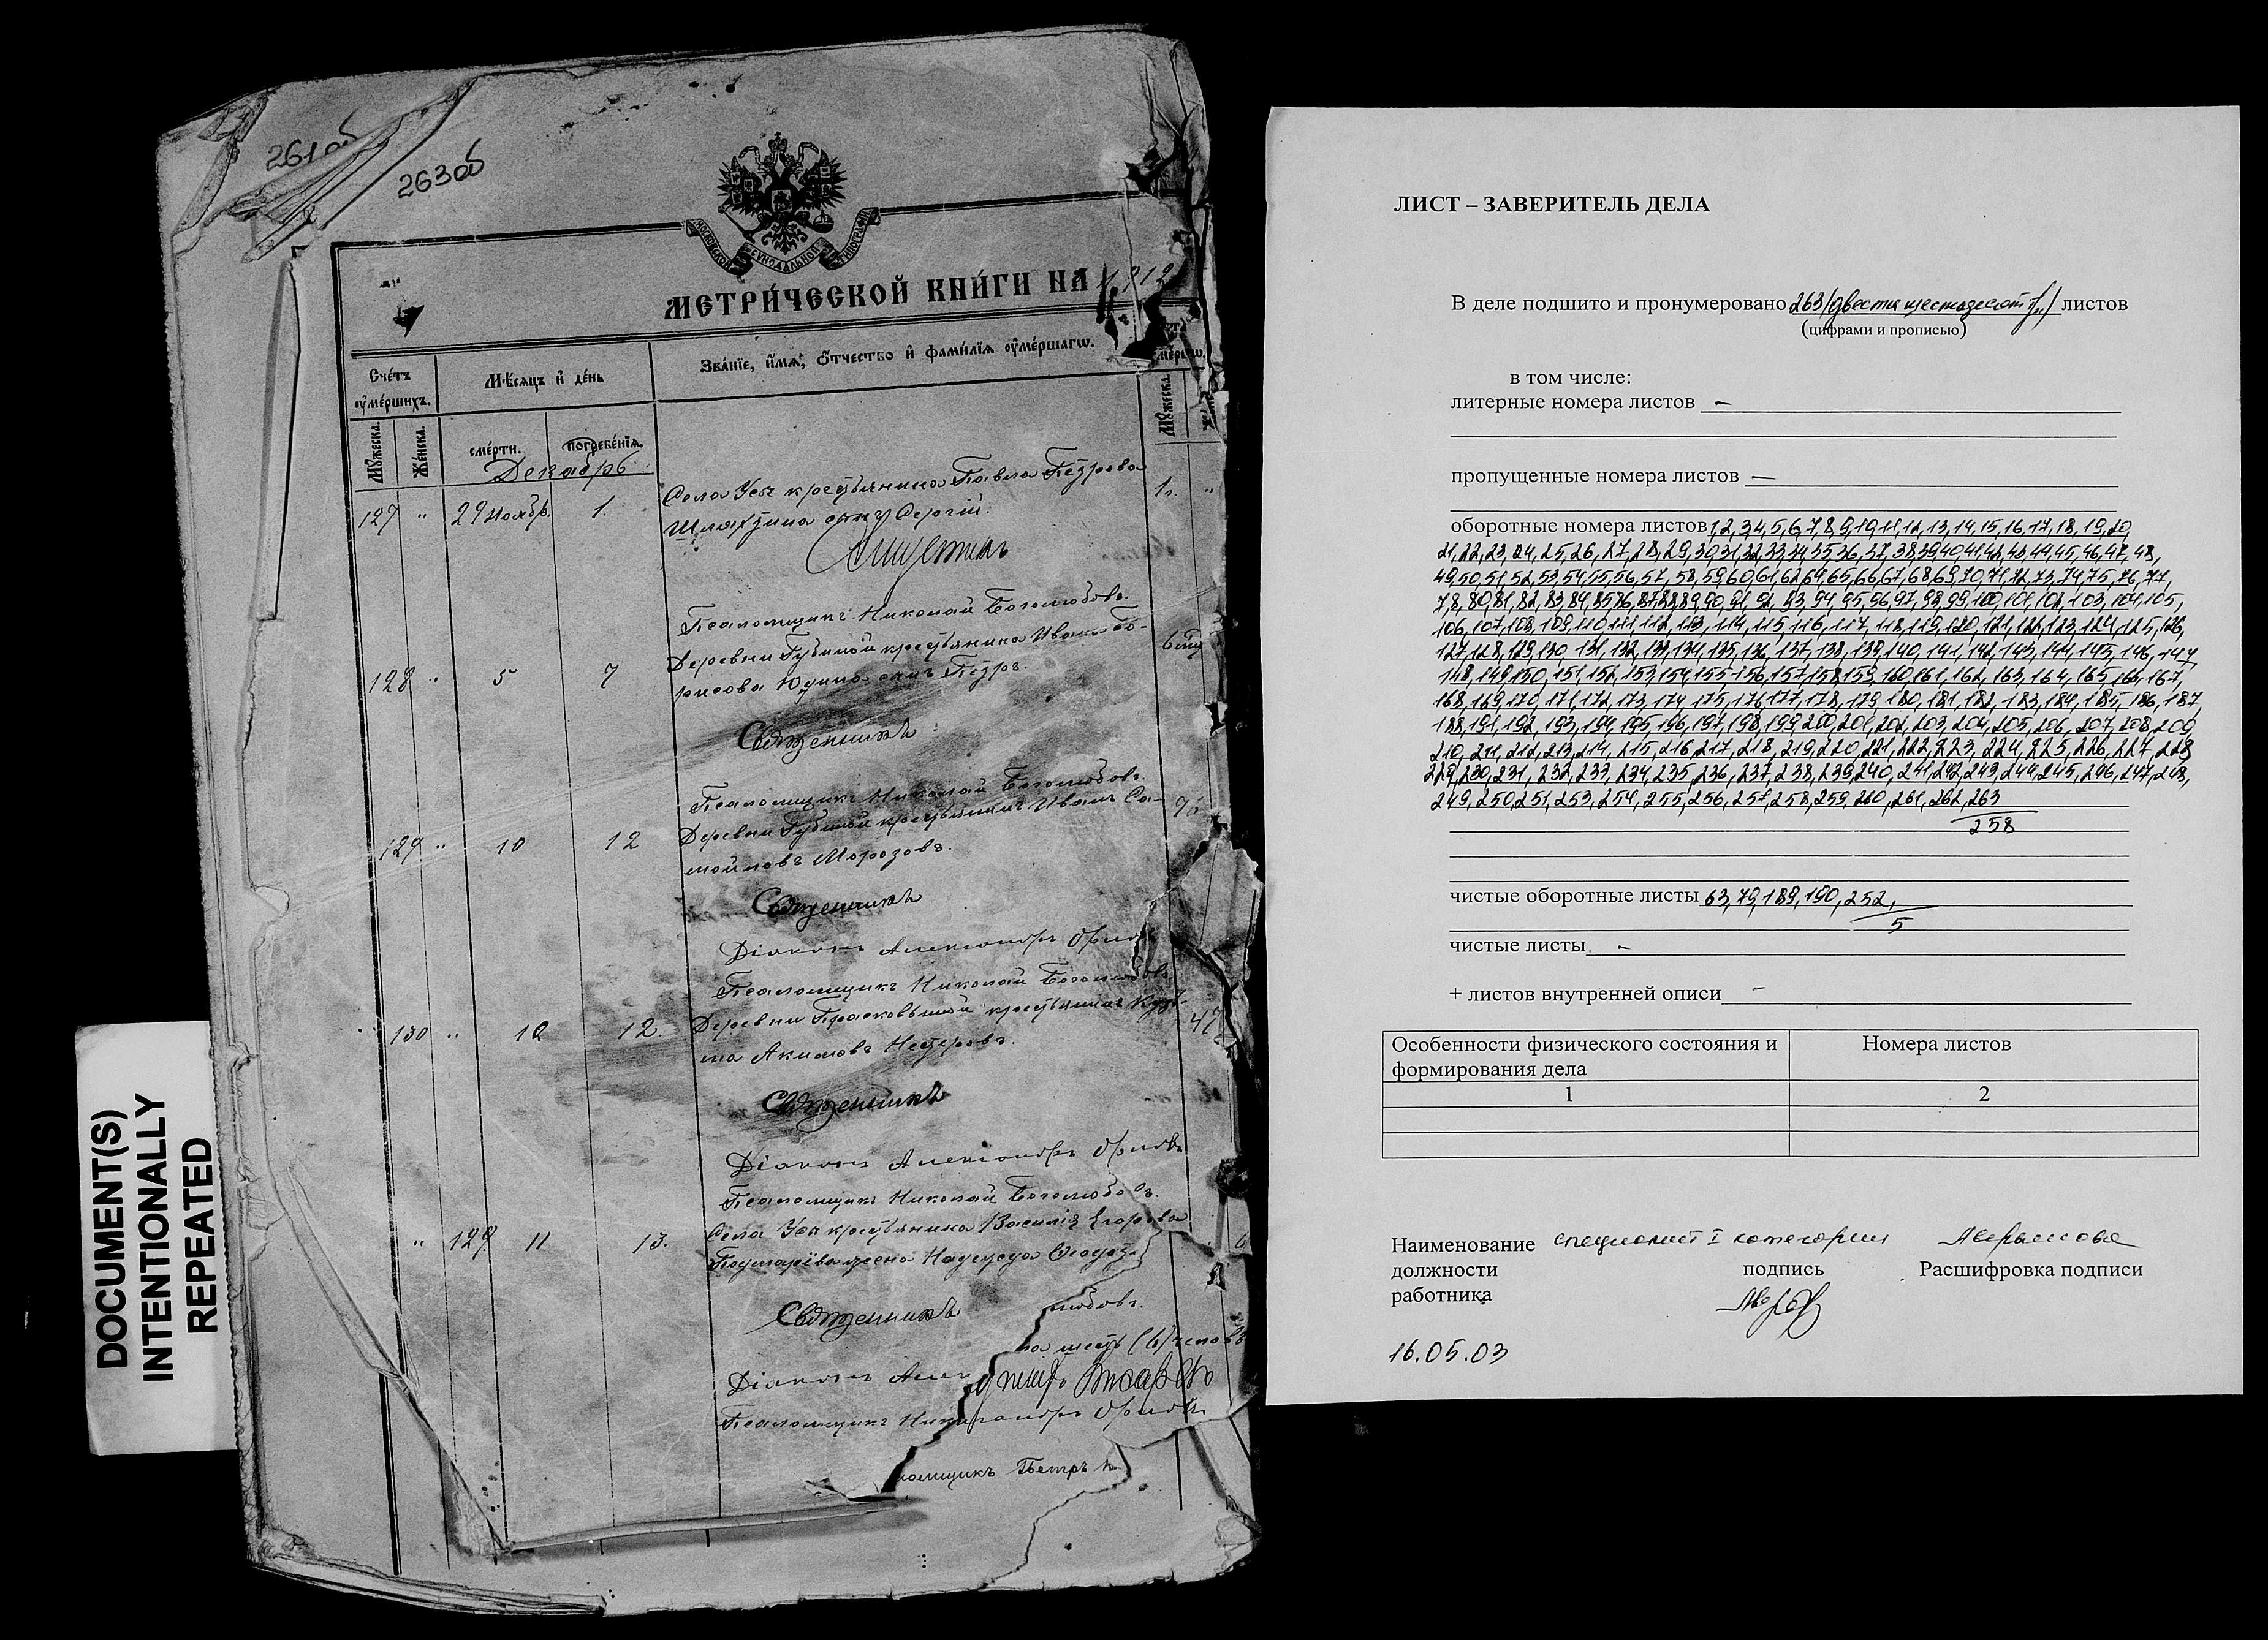 263об
МОСКОВСКОЙ СѴНОДАЛЬНОЙ ТИПОГРАФІИ
МЕТРИ́ЧЕСКОЙ КНИ́ГИ НА 1912
Сче́тъ оу҆ме́ршихъ.
Мѣ́сяцъ и҆ де́нь
Зва́нїе, и҆́мѧ, ѻ҆́тчество и҆ фами́лїѧ оу҆ме́ршагѡ.
Мꙋ́жеска.
Же́нска.
сме́рти.
погребе́нїѧ.
Мꙋ́жеска.
Декабрь
127 " 29 Ноябр. 1. Села Усы крестьянина Павла Петрова 1г. "
сынъ Сергій.
Псаломщикъ Николай Боголюбовъ.
128 " 5 7 Деревни Губиной крестьянина Ивана Бо-
рисова Юдина сынъ Петръ.
Священникъ
Псаломщикъ Николай Боголюбовъ.
129 " 10 12 Деревни Губиной крестьянинъ Иванъ Са-
мойловъ Морозовъ.
Священникъ
Діаконъ Александръ Орлов
Псаломщикъ Николай Боголюбовъ
130 " 10 12. Деревни крестьянинъ Кузь- 47
ма Акимовъ
Священникъ
Діаконъ Александръ Орловъ
Псаломщикъ Николай Боголюбовъ.
" 129 11 13. Села Усы крестьянина Василія Егорова
жена Надежда
Священникъ
любовъ.
Діаконъ Алек
Псаломщикъ Никандръ Орловъ
ломщикъ Петръ
DOCUMENT(S)
INTENTIONALLY
REPEATED
ЛИСТ – ЗАВЕРИТЕЛЬ ДЕЛА
В деле подшито и пронумеровано 263 (двести шестьдесят три) листов
(цифрами и прописью)
в том числе:
литерные номера листов –
пропущенные номера листов –
оборотные номера листов 1,2,3,4,5,6,7,8,9,10,11,12,13,14,15,16,17,18,19,20,
21,22,23,24,25,26,27,28,29,30,31,32,33,34,35,36,37,38,39,40,41,42,43,44,45,46,47,48,
49,50,51,52,53,54,55,56,57,58,59,60,61,62,64,65,66,67,68,69,70,71,72,73,74,75,76,77,
78,80,81,82,83,84,85,86,87,88,89,90,91,92,93,94,95,96,97,98,99,100,101,102,103,104,105,
106,107,108,109,110,111,112,113,114,115,116,117,118,119,120,121,122,123,124,125,126,
127,128,129,130,131,132,133,134,135,136,137,138,139,140,141,142,143,144,145,146,147,
148,149,150,151,152,153,154,155,156,157,158,159,160,161,162,163,164,165,166,167,
168,169,170,171,172,173,174,175,176,177,178,179,180,181,182,183,184,185,186,187,
188,191,192,193,194,195,196,197,198,199,200,201,202,203,204,205,206,207,208,209,
210,211,212,213,214,215,216,217,218,219,220,221,222,223,224,225,226,227,228,
229,230,231,232,233,234,235,236,237,238,239,240,241,242,243,244,245,246,247,248,
249,250,251,253,254,255,256,257,258,259,260,261,262,263
258
чистые оборотные листы 63,79,189,190,252,
5
чистые листы –
+ листов внутренней описи –
Особенности физического состояния и формирования дела
Номера листов
1 2
Наименование специалист I категории Аверьянова
должности подпись Расшифровка подписи
работника
16.05.03